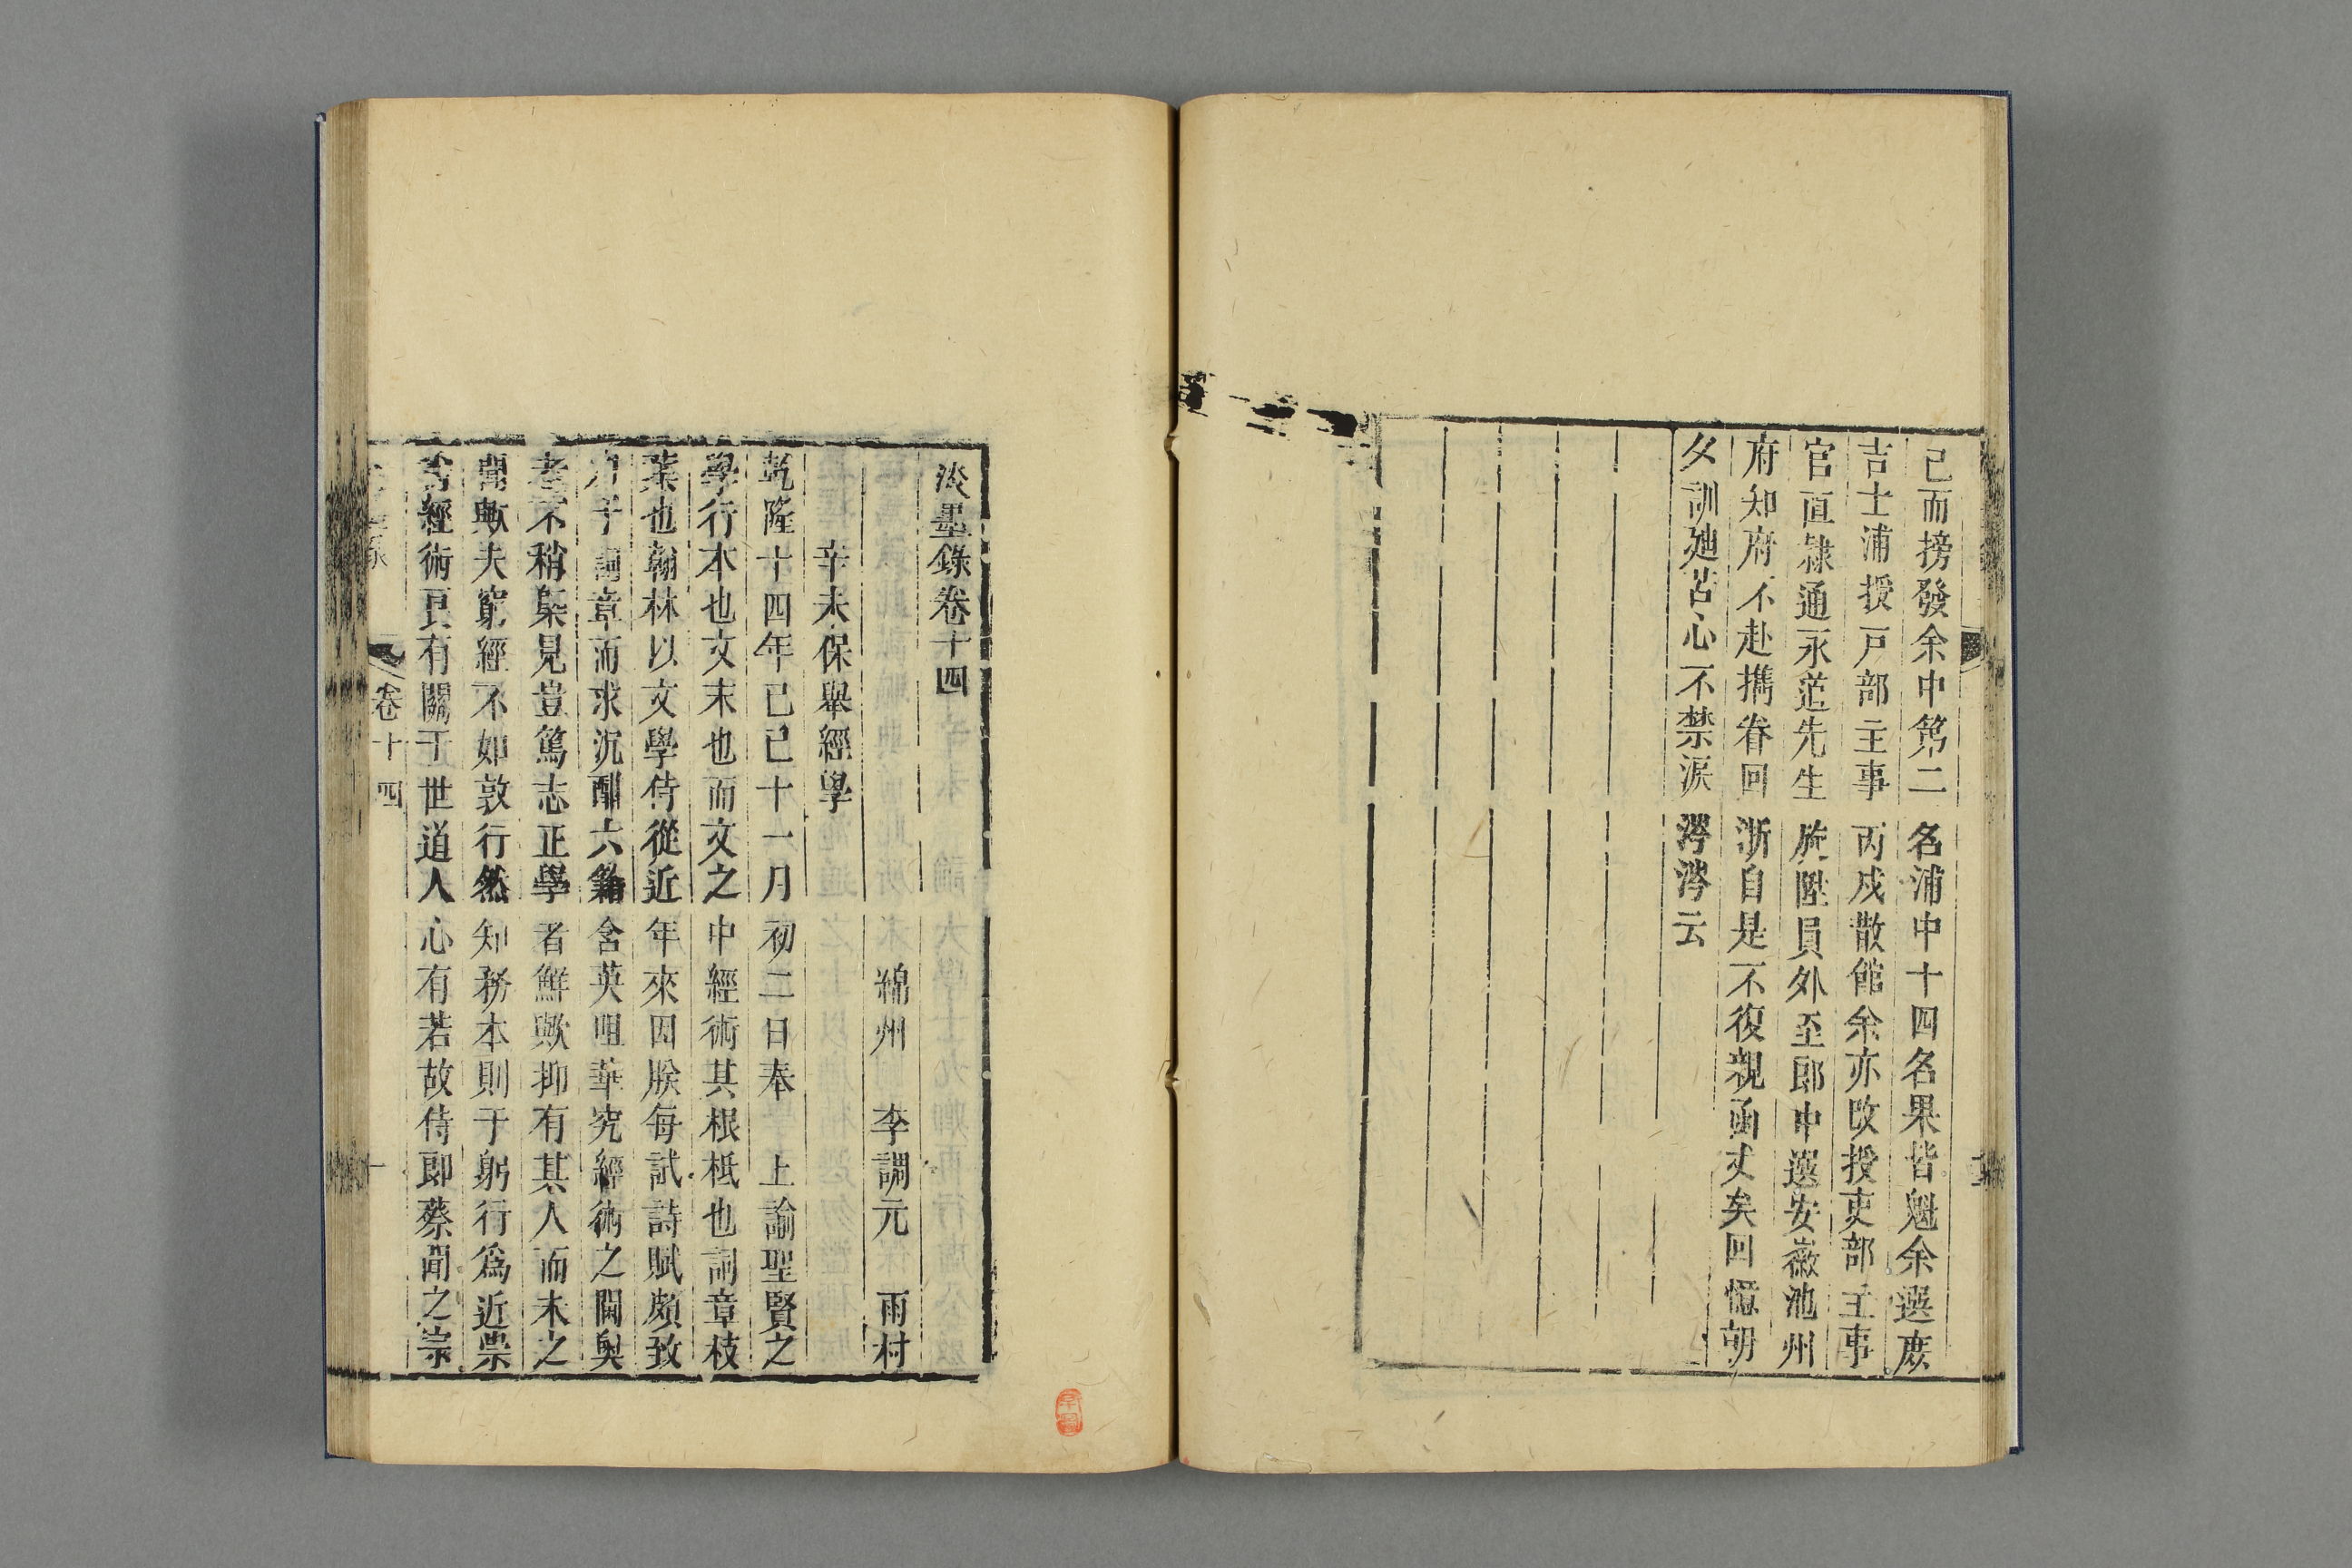 已而榜發余中第二名浦中十四名果皆魁余選庶
吉士浦授戸部主事丙戍散館余亦改授吏部主事
官直隸通永道先生旋陞員外至郎中選安徽池州
府知府不赴攜眷回浙自是不復親函丈矣回憶朝
夕訓廸苦心不禁淚滂滂云
淡墨錄卷十四
綿州 李調元 雨村
辛未保舉經學
乾隆十四年已巳十一月初二日奉 上諭聖賢之
學行本也文末也而文之中經術其根柢也詞章枝
葉也翰林以文學侍從近年來因朕每試詩賦頗致
力于詞章而求沉酣六籍含英咀華究經術之閫奧
者不稍槩見豈篤志正學者鮮歟抑有其人而未之
聞歟夫窮經不如敦行然知務本則于躬行爲近崇
尚經術良有關于世道人心有若故侍郎蔡聞之宗
卷十四
一